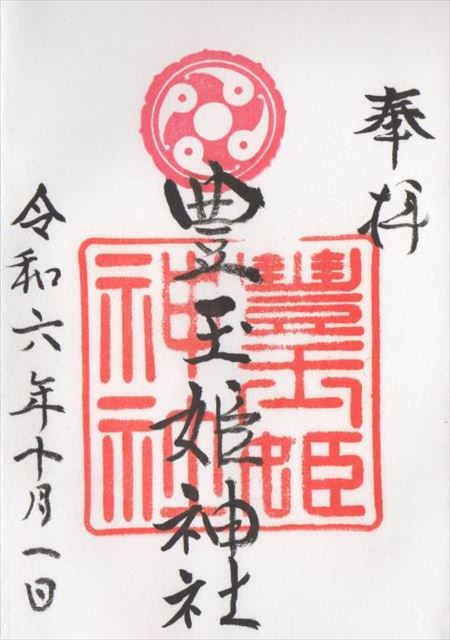 奉拝
豊玉姫神社
豊玉姫
神社
令和六年十月一日